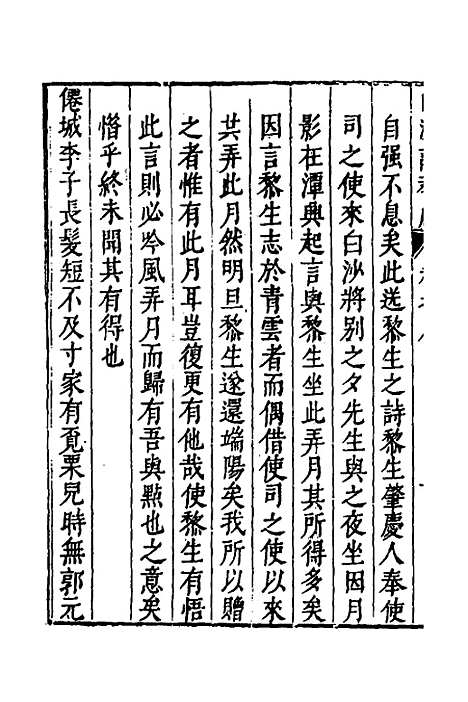 自强不息矣此送黎生之詩黎生肇慶人奉使
司之使來白沙將别之夕先生與之夜坐因月
影在潭興起言與黎生坐此弄月其所得多矣
因言黎生志於青雲者而偶借使司之使以來
共弄此月然明旦黎生遂還端陽矣我所以贈
之者惟有此月耳豈復更有他哉使黎生有悟
此言則必吟風弄月而歸有吾與點也之意矣
惜乎終未聞其有得也
僊城李子長髮短不及寸家有覓栗兒時無郭元